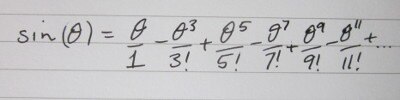 sin(θ) = θ/1 - θ³/3! + θ⁵/5! - θ⁷/7! + θ⁹/9! - θ¹¹/11! + ...